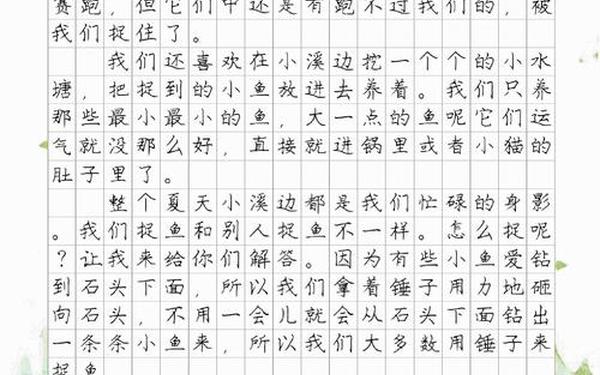 赛跑，但它们中还是有跑不过我们的，被
我们捉住了。
我们还喜欢在小溪边挖一个个的小水
塘，把捉到的小鱼放进去养着。我们只养
那些最小最小的鱼，大一点的鱼呢它们运
气就没那么好，直接就进锅里或者小猫的
肚子里了。
整个夏天小溪边都是我们忙碌的身影
。我们捉鱼和别人捉鱼不一样。怎么捉呢
？让我来给你们解答。因为有些小鱼爱钻
到石头下面，所以我们拿着锤子用力地砸
向石头，不用一会儿就会从石头下面钻出
一条条小鱼来，所以我们大多数用锤子来
捉鱼